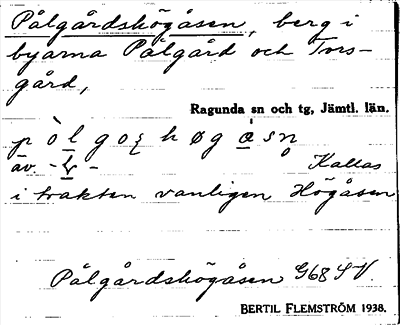 Pålgårdshögåsen, berg i
byarna Pålgård och Tors-
gård,
Ragunda sn och tg, Jämtl. län.
av. Kallas
i trakten vanligen Högåsen
Pålgårdshögåsen G68 SV.
BERTIL FLEMSTRÖM 1938.